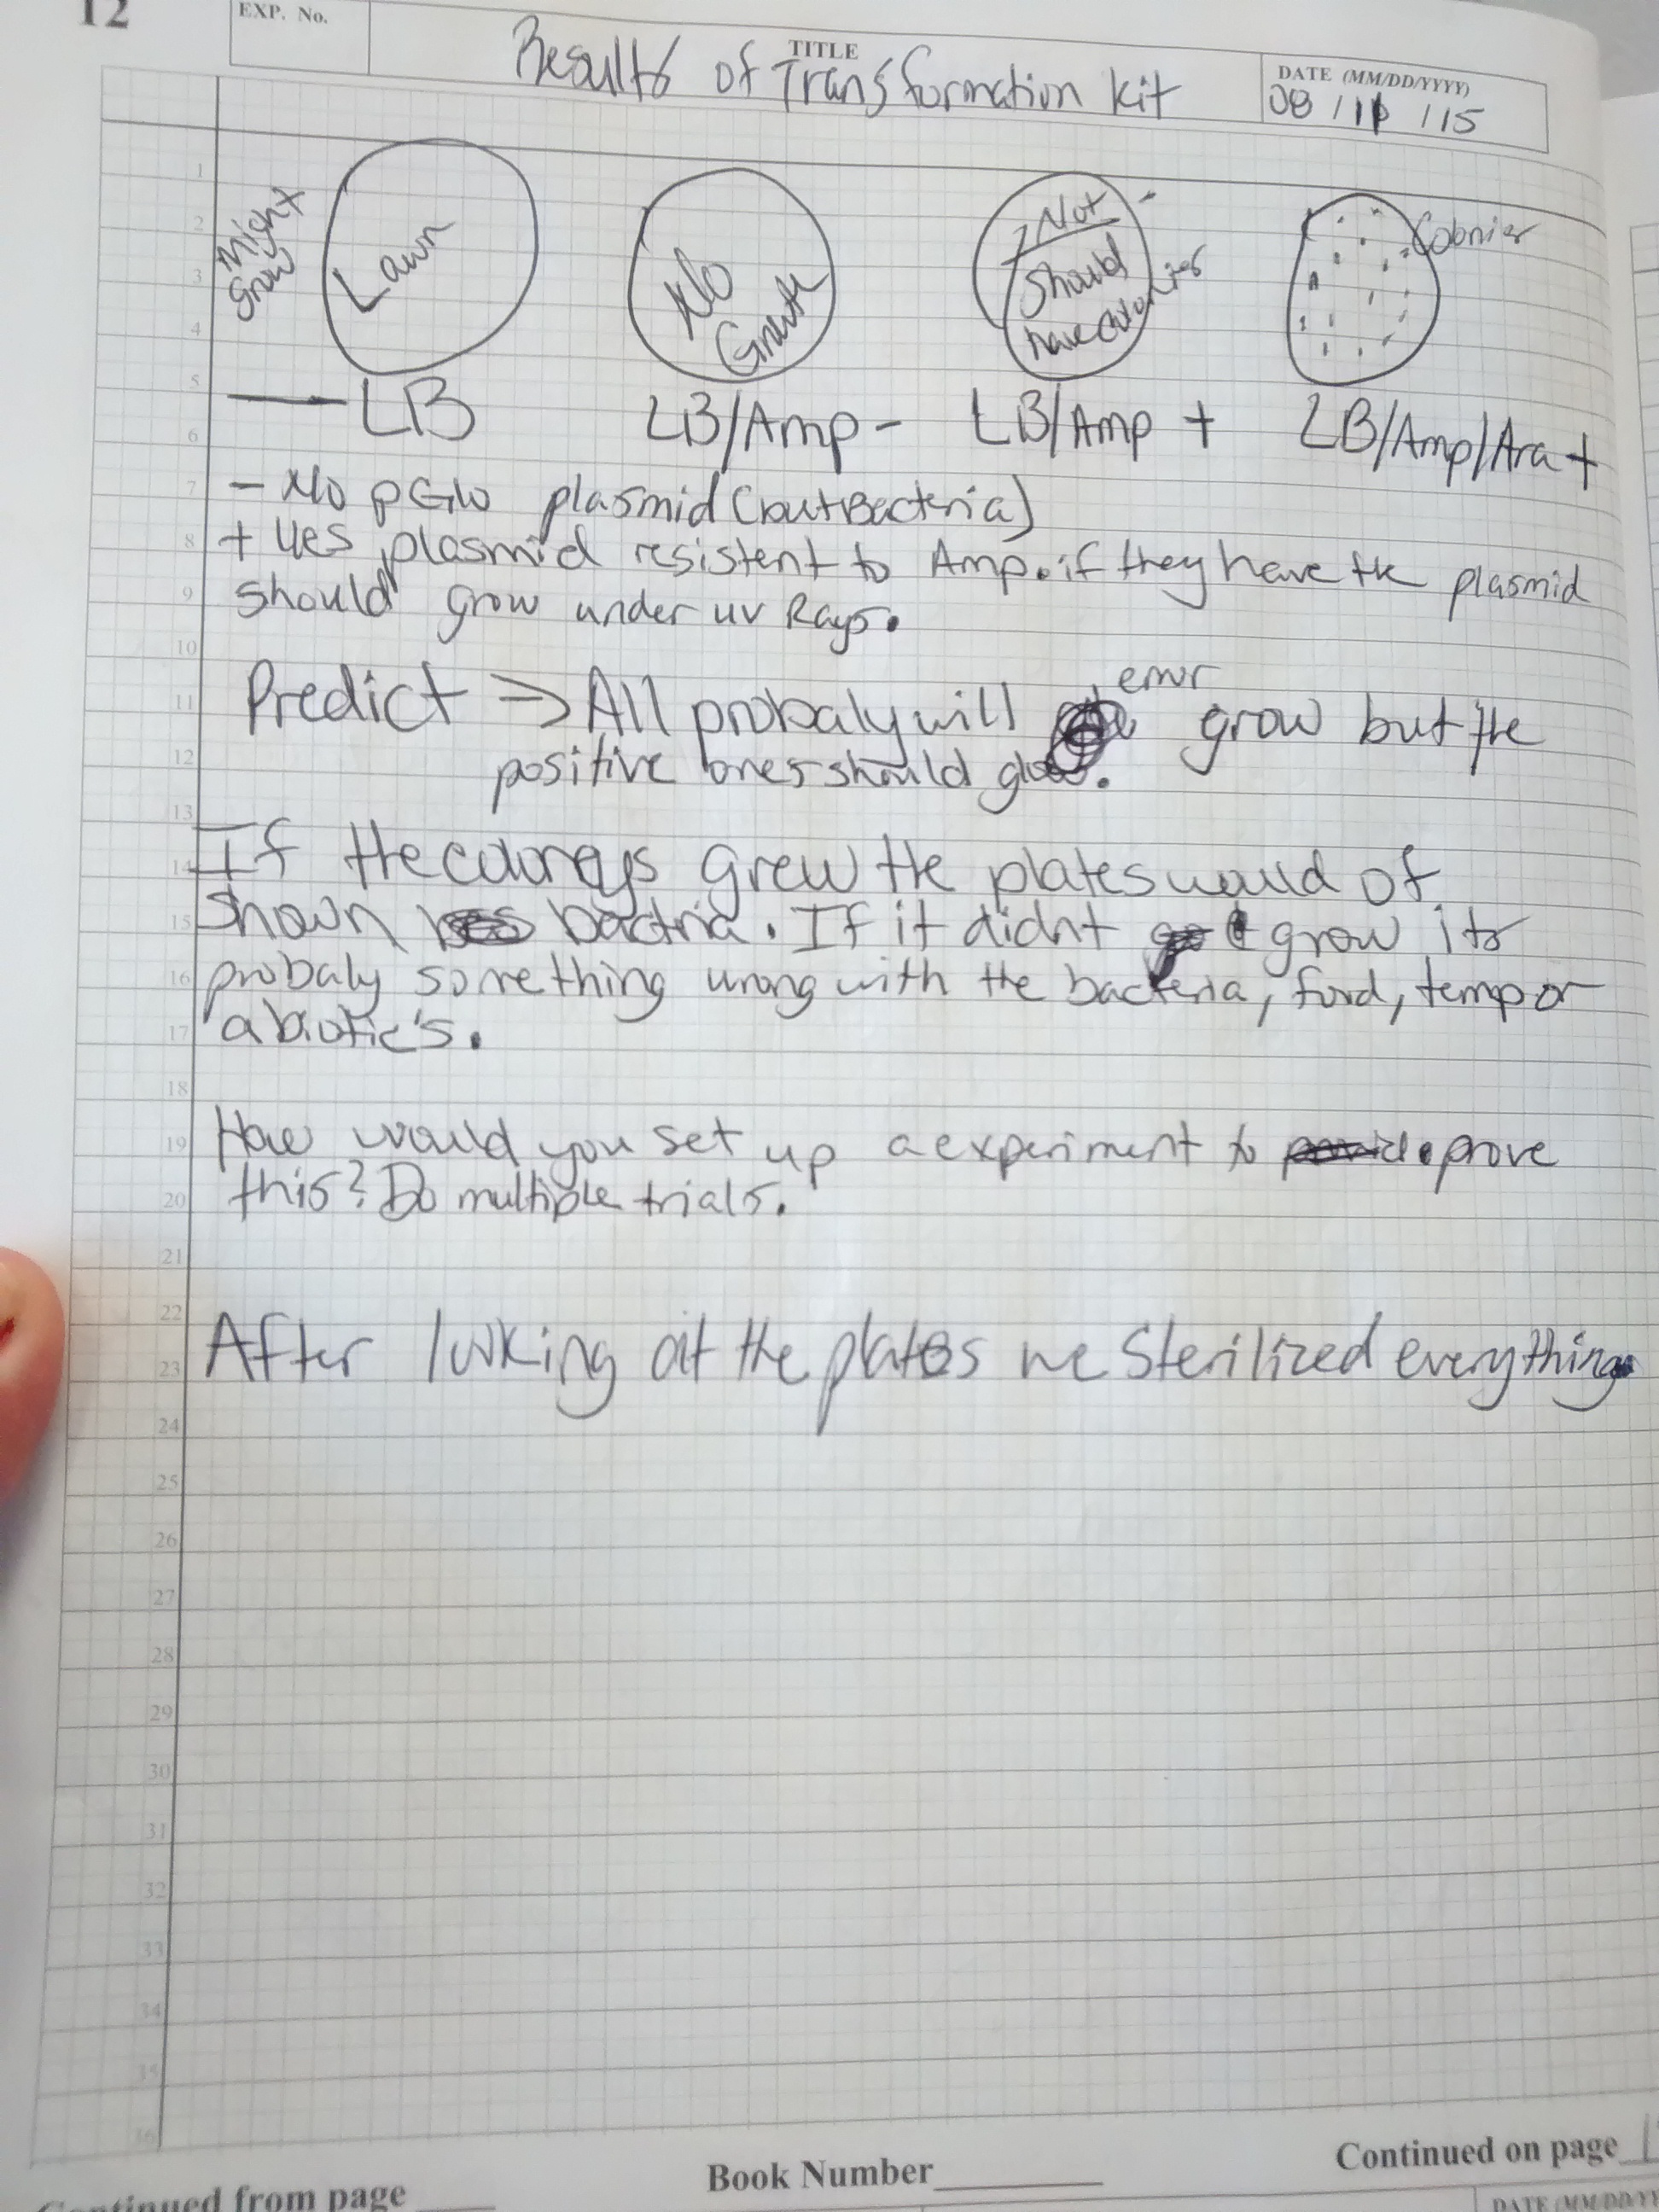 12
EXP. No.
TITLE
Results of Transformation kit
DATE (MM/DD/YYYY)
08 / 11 / 15
Might Grow
Lawn
No Growth
Not
should have colonies
Colonies
— LB
LB/Amp -
LB/Amp +
LB/Amp/Ara +
- No pGlo plasmid (but Bacteria)
+ Yes plasmid resistent to Amp. if they have the plasmid
should grow under uv Rays.
error
Predict ⇒ All probaly will grow but the
positive ones should glow.
If the coloneys grew the plates would of
shown bactria. If it didnt grow its
probaly something wrong with the bacteria, food, temp or
abiotic's.
How would you set up a experiment to prove
this? Do multiple trials.
After looking at the plates we Sterilized everything.
1
2
3
4
5
6
7
8
9
10
11
12
13
14
15
16
17
18
19
20
21
22
23
24
25
26
27
28
29
30
31
32
33
34
35
36
Continued from page
Book Number
Continued on page
DATE (MM/DD/YY